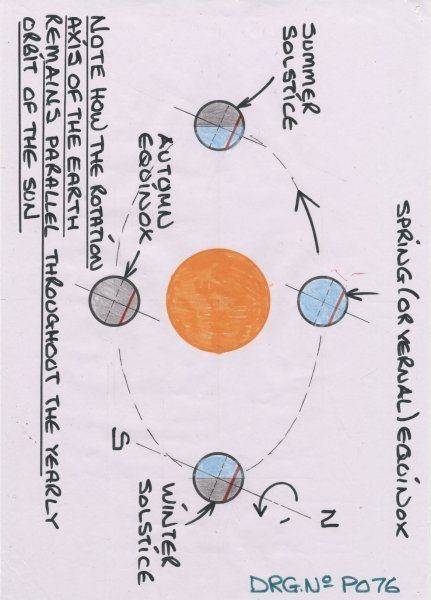 SPRING (OR VERNAL) EQUINOX
SUMMER
SOLSTICE
N
WINTER
SOLSTICE
AUTUMN
EQUINOX
S
NOTE HOW THE ROTATION
AXIS OF THE EARTH
REMAINS PARALLEL THROUGHOUT THE YEARLY
ORBIT OF THE SUN
DRG.Nº P076